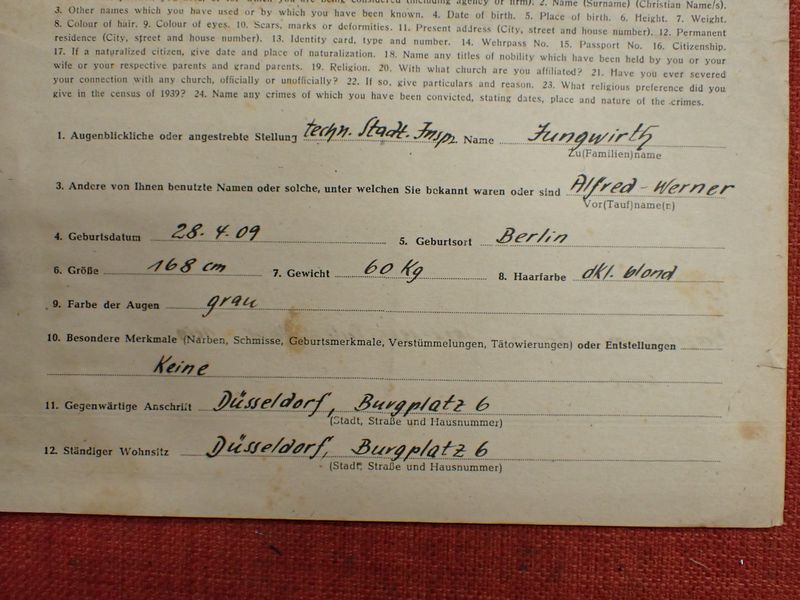 you are being considered (including agency or firm). 2. Name (Surname) (Christian Name/s).
3. Other names which you have used or by which you have been known. 4. Date of birth. 5. Place of birth. 6. Height. 7. Weight.
8. Colour of hair. 9. Colour of eyes. 10. Scars, marks or deformities. 11. Present address (City, street and house number). 12. Permanent
residence (City, street and house number). 13. Identity card, type and number. 14. Wehrpass No. 15. Passport No. 16. Citizenship.
17. If a naturalized citizen, give date and place of naturalization. 18. Name any titles of nobility which have been held by you or your
wife or your respective parents and grand parents. 19. Religion. 20. With what church are you affiliated? 21. Have you ever severed
your connection with any church, officially or unofficially? 22. If so, give particulars and reason. 23. What religious preference did you
give in the census of 1939? 24. Name any crimes of which you have been convicted, stating dates, place and nature of the crimes.
1. Augenblickliche oder angestrebte Stellung techn. Stadt. Insp. Name Jungwirth
Zu(Familien)name
3. Andere von Ihnen benutzte Namen oder solche, unter welchen Sie bekannt waren oder sind Alfred-Werner
Vor(Tauf)name(n)
4. Geburtsdatum 28.4.09 5. Geburtsort Berlin
6. Größe 168 cm 7. Gewicht 60 Kg 8. Haarfarbe dkl. blond
9. Farbe der Augen grau
10. Besondere Merkmale (Narben, Schmisse, Geburtsmerkmale, Verstümmelungen, Tätowierungen) oder Entstellungen
Keine
11. Gegenwärtige Anschrift Düsseldorf, Burgplatz 6
(Stadt, Straße und Hausnummer)
12. Ständiger Wohnsitz Düsseldorf, Burgplatz 6
(Stadt, Straße und Hausnummer)